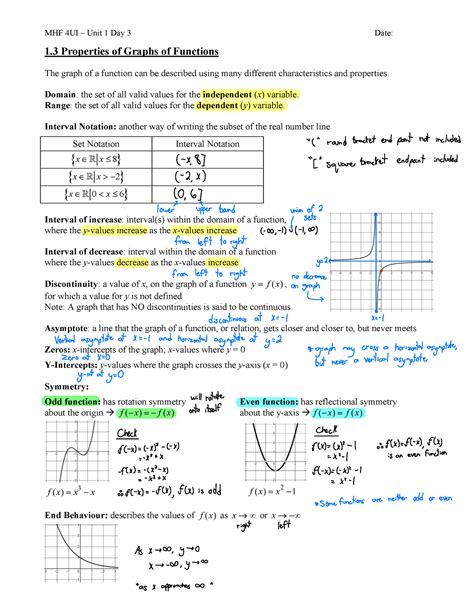 MHF 4UI – Unit 1 Day 3 Date:
1.3 Properties of Graphs of Functions
The graph of a function can be described using many different characteristics and properties.
Domain: the set of all valid values for the independent (x) variable.
Range: the set of all valid values for the dependent (y) variable.
Interval Notation: another way of writing the subset of the real number line
"(" round bracket end point not included
"[" square bracket endpoint included
Set Notation Interval Notation
{x ∈ ℝ | x ≤ 8} (-∞, 8]
{x ∈ ℝ | x > -2} (-2, ∞)
{x ∈ ℝ | 0 < x ≤ 6} (0, 6]
lower upper bound
union of 2 sets
Interval of increase: interval(s) within the domain of a function,
where the y-values increase as the x-values increase (-∞,-1)∪(-1,∞)
from left to right
Interval of decrease: interval within the domain of a function
where the y-values decrease as the x-values increase
from left to right
no decrease on graph
y=2
x=-1
Discontinuity: a value of x, on the graph of a function y = f(x),
for which a value for y is not defined
Note: A graph that has NO discontinuities is said to be continuous
discontinuous at x=-1
Asymptote: a line that the graph of a function, or relation, gets closer and closer to, but never meets
Vertical asymptote at x=-1 and horizontal asymptote at y=2
Zeros: x-intercepts of the graph; x-values where y = 0
zero at x=0
* graph may cross a horizontal asymptote, but never a vertical asymptote.
Y-Intercepts: y-values where the graph crosses the y-axis (x = 0)
y-int at y=0
Symmetry:
Odd function: has rotation symmetry
about the origin → f(-x) = -f(x)
will rotate onto itself
Even function: has reflectional symmetry
about the y-axis → f(-x) = f(x)
Check
f(-x)=(-x)³-(-x)
=-x³+x
-f(x)=-(x³-x)
=-x³+x
f(x) = x³ - x
∴f(-x)=-f(x), f(x) is odd
Check
f(x)=(x)²-1
=x²-1
f(-x)=(-x)²-1
=x²-1
f(x) = x² - 1
∴f(x)=f(-x), f(x) is an even function
* Some functions are neither odd or even
End Behaviour: describes the values of f(x) as x → ∞ or x → -∞
right left
As x→∞, y→0
x→-∞, y→∞
"as x approaches ∞"